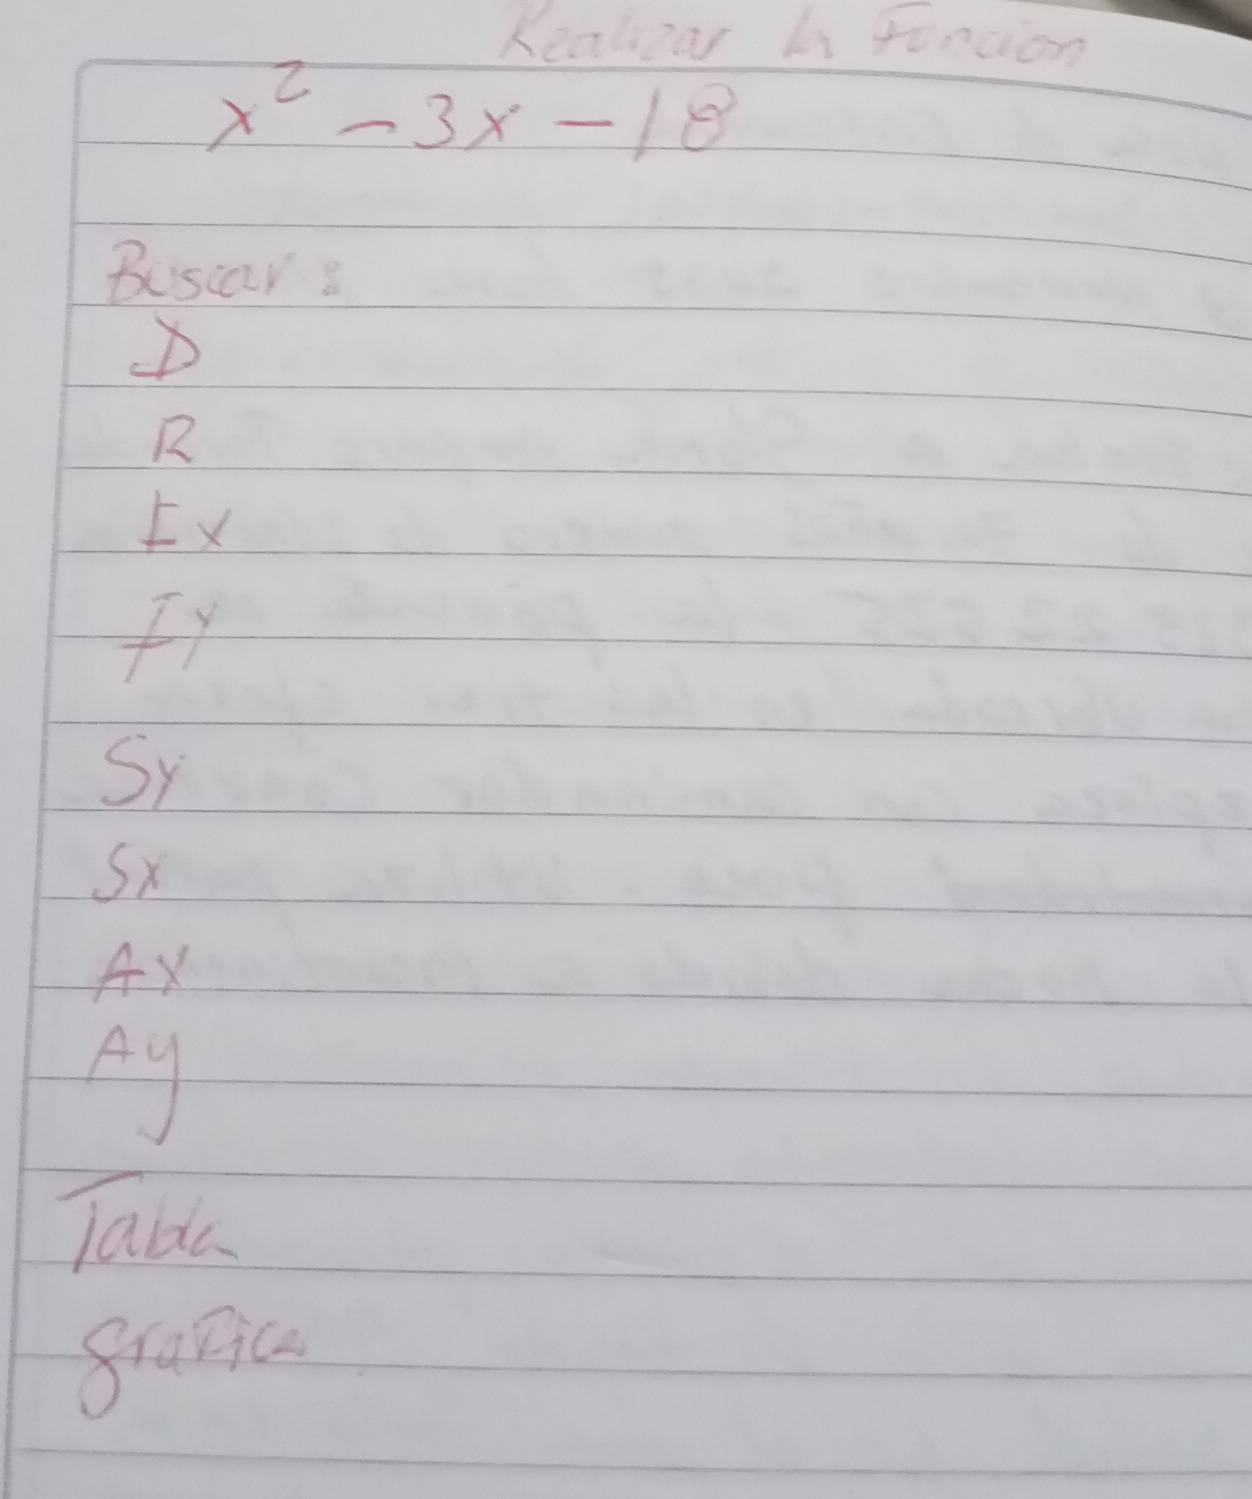 Realizar la Función
x² - 3x - 18
Buscar:
D
R
Ix
Iy
Sy
Sx
Ax
Ay
Tabla
grafica